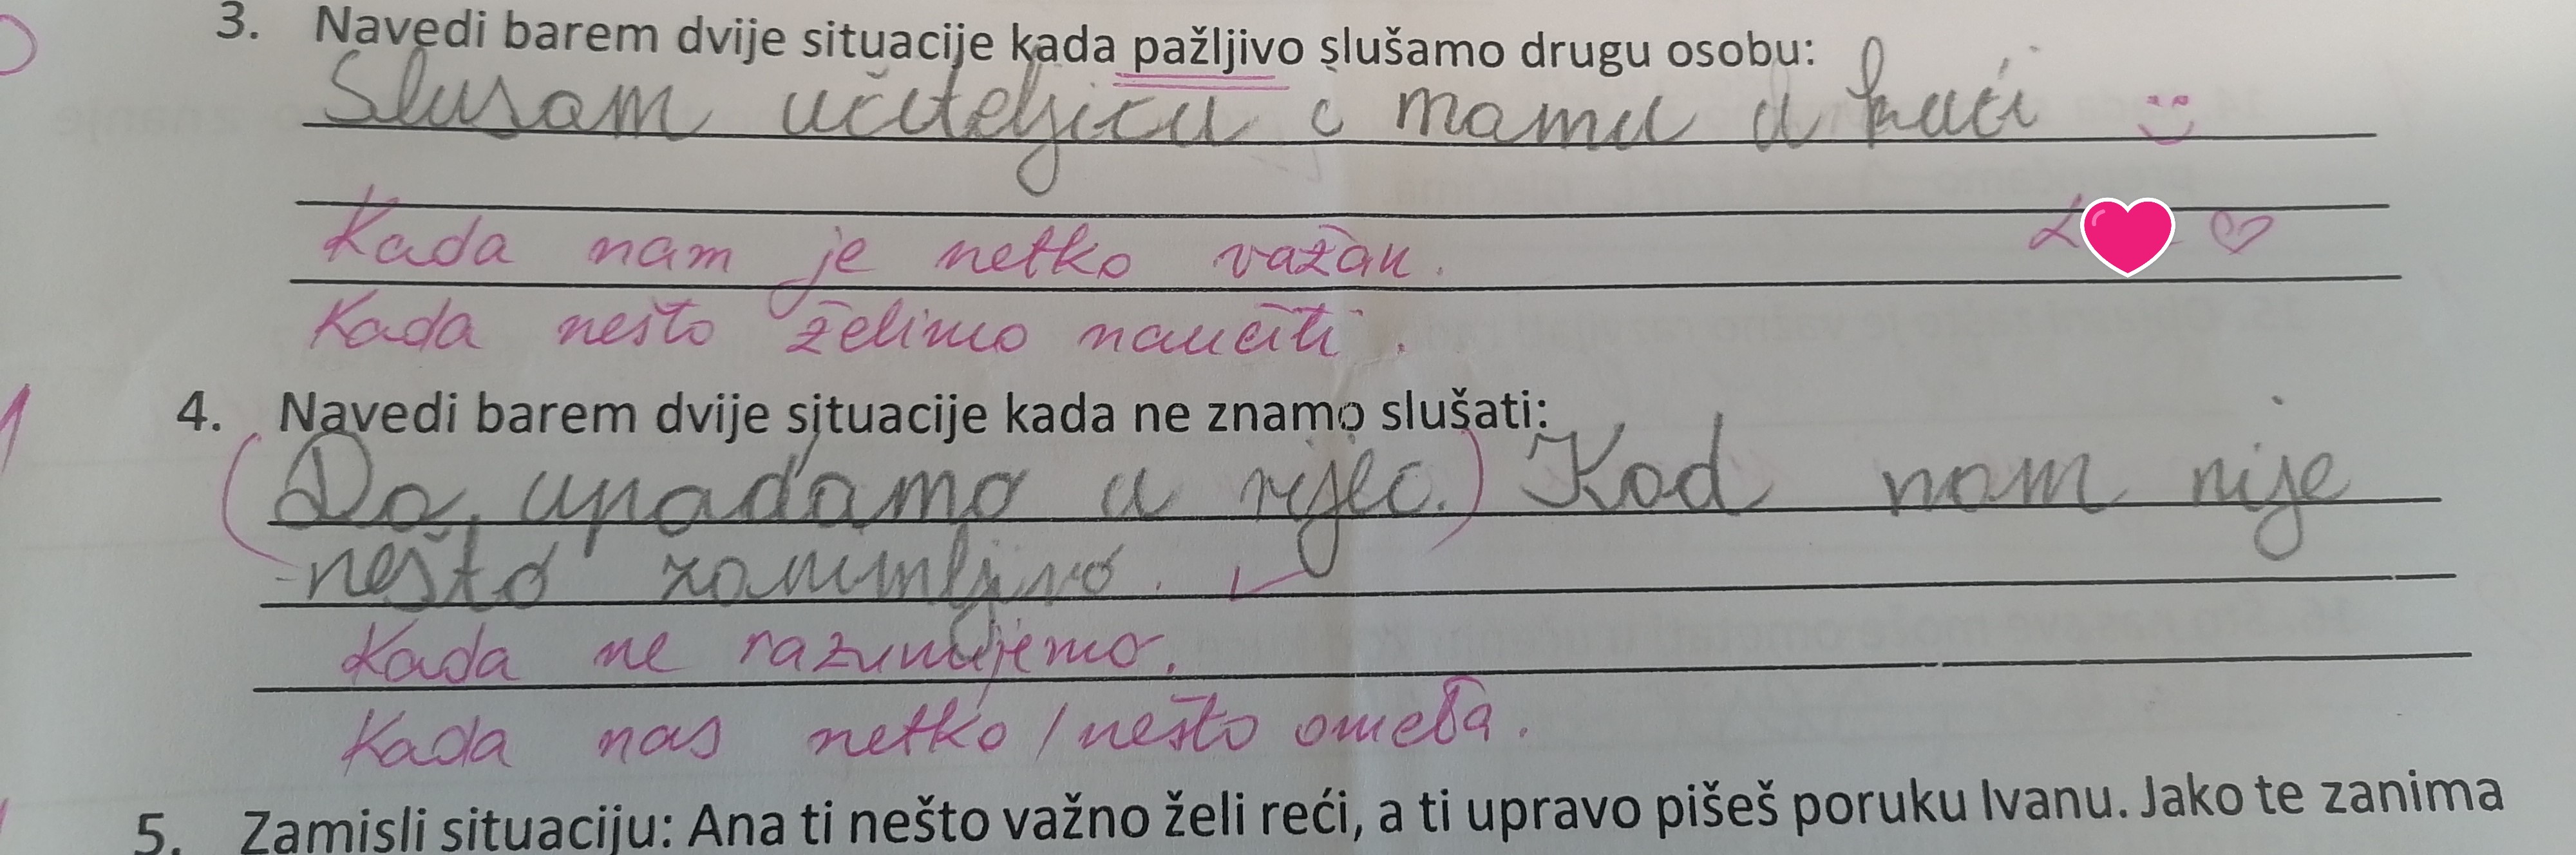 3. Navedi barem dvije situacije kada pažljivo slušamo drugu osobu:
Slušam učiteljicu i mamu u kući
Kada nam je netko važan.
Kada nešto želimo naučiti.
4. Navedi barem dvije situacije kada ne znamo slušati:
(Da, upadamo u riječ.) Kad nam nije
nešto zanimljivo.
Kada ne razumijemo.
Kada nas netko/nešto ometa.
5. Zamisli situaciju: Ana ti nešto važno želi reći, a ti upravo pišeš poruku Ivanu. Jako te zanima